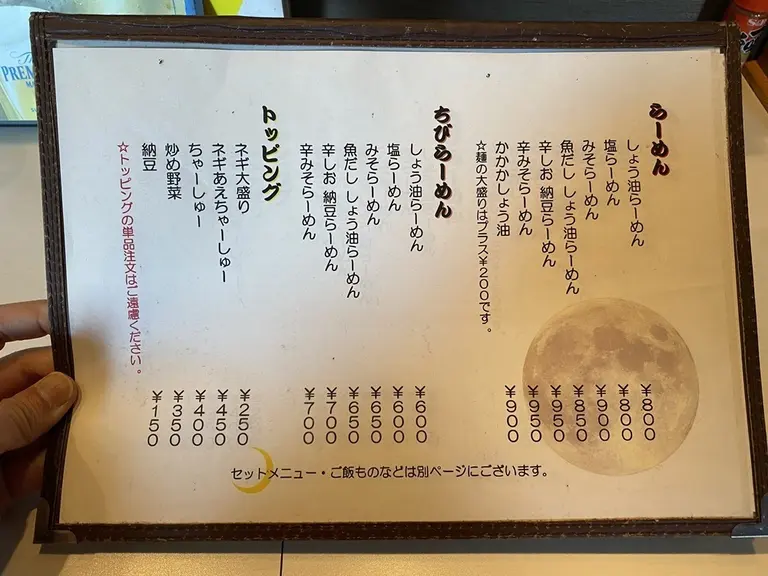 らーめん
しょう油らーめん ¥800
塩らーめん ¥800
みそらーめん ¥900
魚だし しょう油らーめん ¥850
辛しお 納豆らーめん ¥950
辛みそらーめん ¥950
かかかしょう油 ¥900
☆麺の大盛りはプラス¥200です。
ちびらーめん
しょう油らーめん ¥600
塩らーめん ¥600
みそらーめん ¥650
魚だし しょう油らーめん ¥650
辛しお 納豆らーめん ¥700
辛みそらーめん ¥700
トッピング
ネギ大盛り ¥250
ネギあえちゃーしゅー ¥450
ちゃーしゅー ¥400
炒め野菜 ¥350
納豆 ¥150
☆トッピングの単品注文はご遠慮ください。
セットメニュー・ご飯ものなどは別ページにございます。